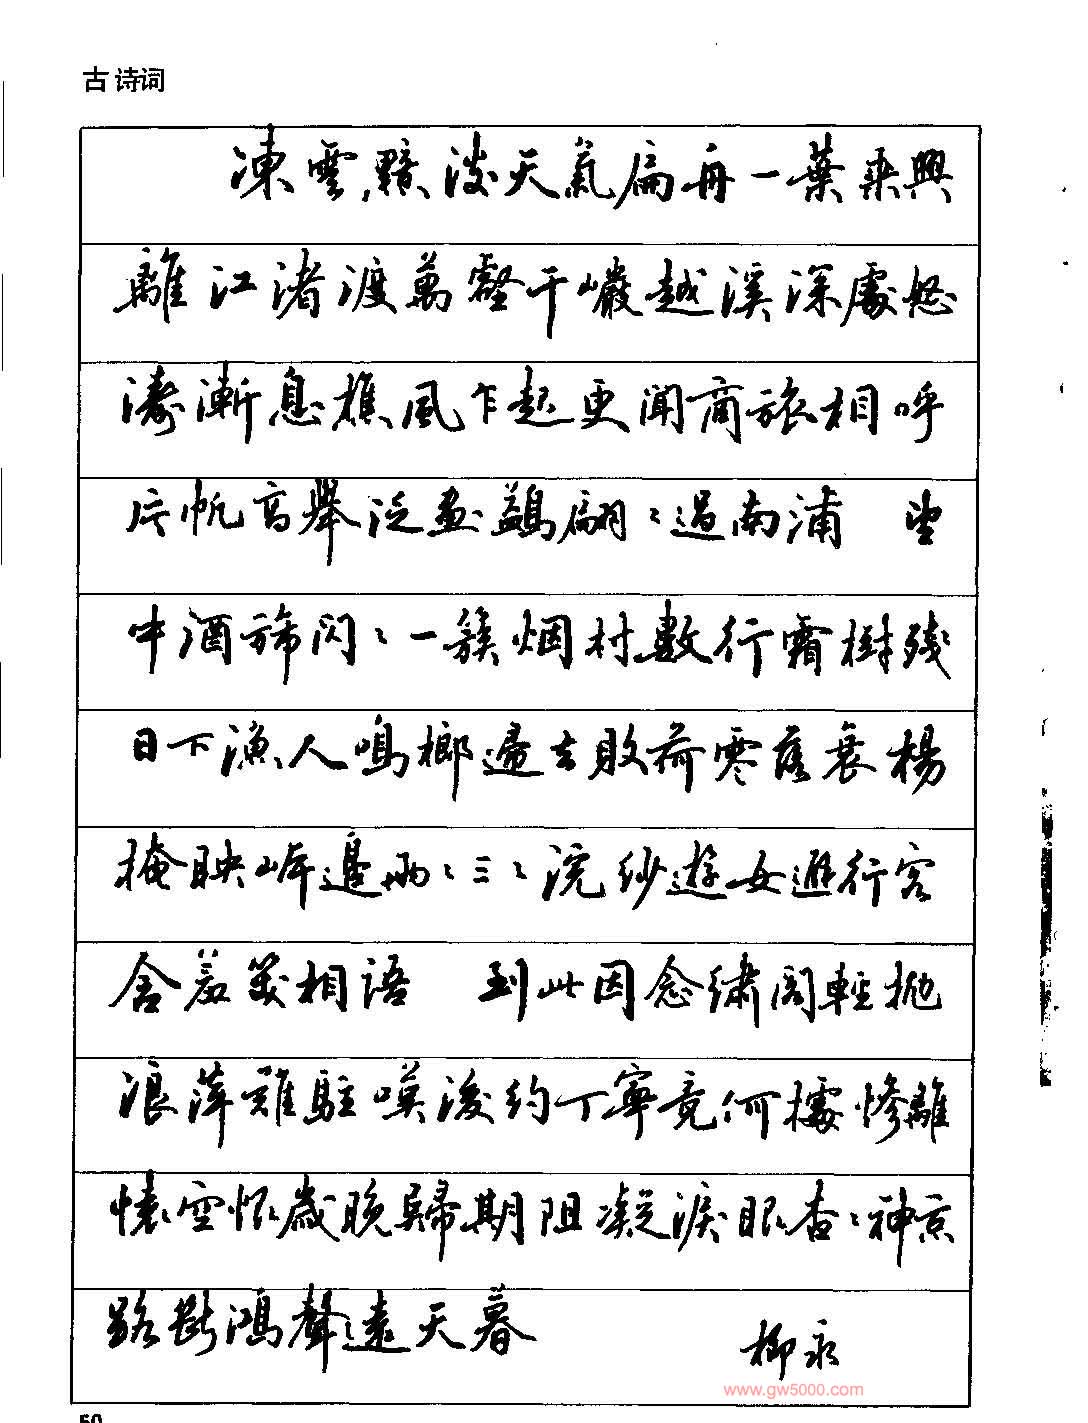 古诗词
凍雲黯淡天氣扁舟一葉乘興
離江渚渡萬壑千巖越溪深處怒
濤漸息樵風乍起更聞商旅相呼
片帆高舉泛畫鷁翩〻過南浦 望
中酒旆閃〻一簇烟村數行霜樹殘
日下漁人鳴榔歸去敗荷零落衰楊
掩映岸邊兩〻三〻浣紗遊女避行客
含羞笑相語 到此因念繡閣輕拋
浪萍難駐嘆後約丁寧竟何據慘離
懷空恨歲晚歸期阻凝淚眼杳〻神京
路斷鴻聲遠天暮
柳永
www.gw5000.com
50